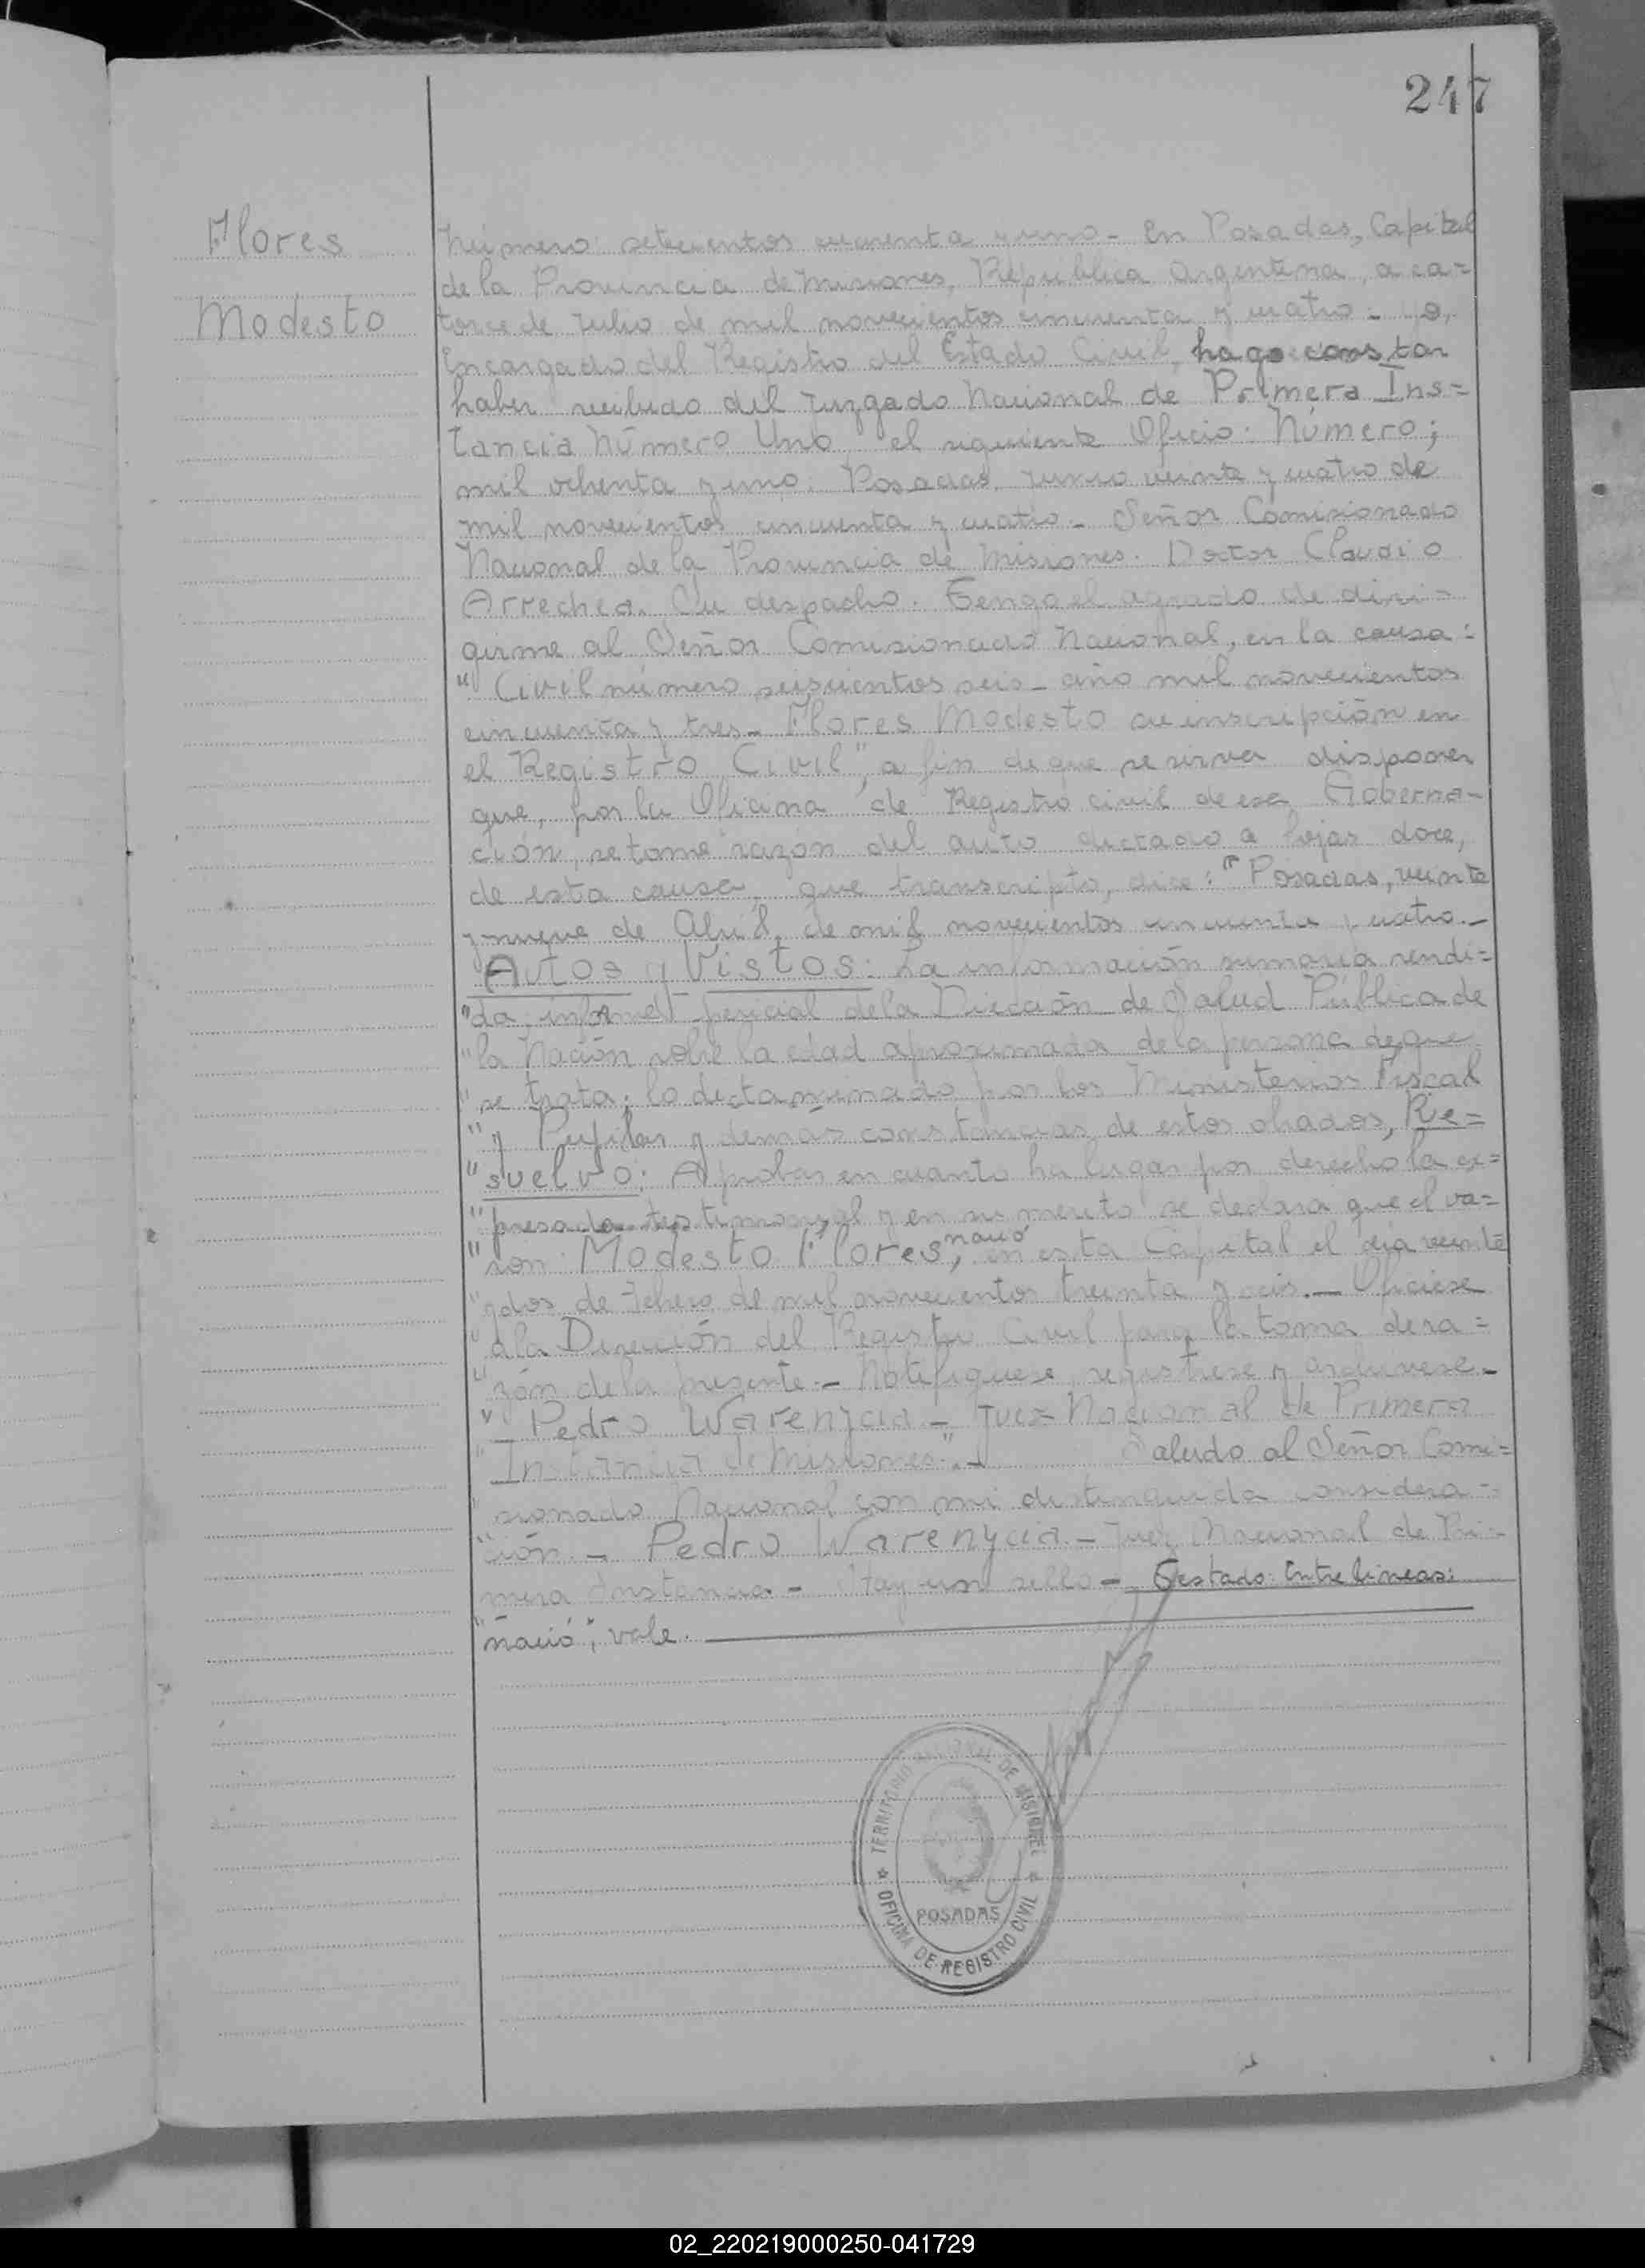 247
Flores
Modesto
Número: setecientos cincuenta y uno - En Posadas, Capital
de la Provincia de Misiones, República Argentina, a ca=
torce de Julio de mil novecientos cincuenta y cuatro - yo,
Encargado del Registro del Estado Civil, hago constar
haber recibido del Juzgado Nacional de Primera Ins=
tancia Número Uno, el siguiente Oficio: Número;
mil ochenta y uno: Posadas, Junio veinte y cuatro de
mil novecientos cincuenta y cuatro - Señor Comisionado
Nacional de la Provincia de Misiones. Doctor Claudio
Arrechea. Su despacho. Tengo el agrado de diri=
girme al Señor Comisionado Nacional, en la causa:
"Civil número seiscientos seis - año mil novecientos
cincuenta y tres - Flores Modesto su inscripción en
el Registro Civil", a fin de que se sirva disponer
que, por la Oficina de Registro civil de esa Goberna-
ción, se tome razón del auto dictado a fojas doce,
de esta causa, que transcripto, dice: "Posadas, veinte
y nueve de Abril de mil novecientos cincuenta y cuatro.-
Autos y Vistos: La información sumaria rendi=
"da, informe pericial de la Dirección de Salud Pública de
"la Nación sobre la edad aproximada de la persona de que
"se trata; lo dictaminado por los Ministerios Fiscal
"y Pupilar y demás constancias de estos obrados, Re=
"suelvo: Aprobar en cuanto ha lugar por derecho la ex=
"presada testimonial y en su merito se declara que el va=
"ron Modesto Flores, nació en esta Capital el día veinte
"y dos de Febrero de mil novecientos treinta y seis.- Ofíciese
"a la Dirección del Registro Civil para la toma de ra=
"zón de la presente.- Notifíquese, regístrese y archívese.-
"Pedro Warenycia - Juez Nacional de Primera
"Instancia de Misiones".- Saludo al Señor Comi=
"sionado Nacional con mi distinguida considera-
"ción - Pedro Warenycia - Juez Nacional de Pri-
mera Instancia - Hay un sello - Testado: Entre lineas:
"nació", vale.
TERRITORIO NACIONAL DE MISIONES
POSADAS
OFICINA DE REGISTRO CIVIL
02_220219000250-041729